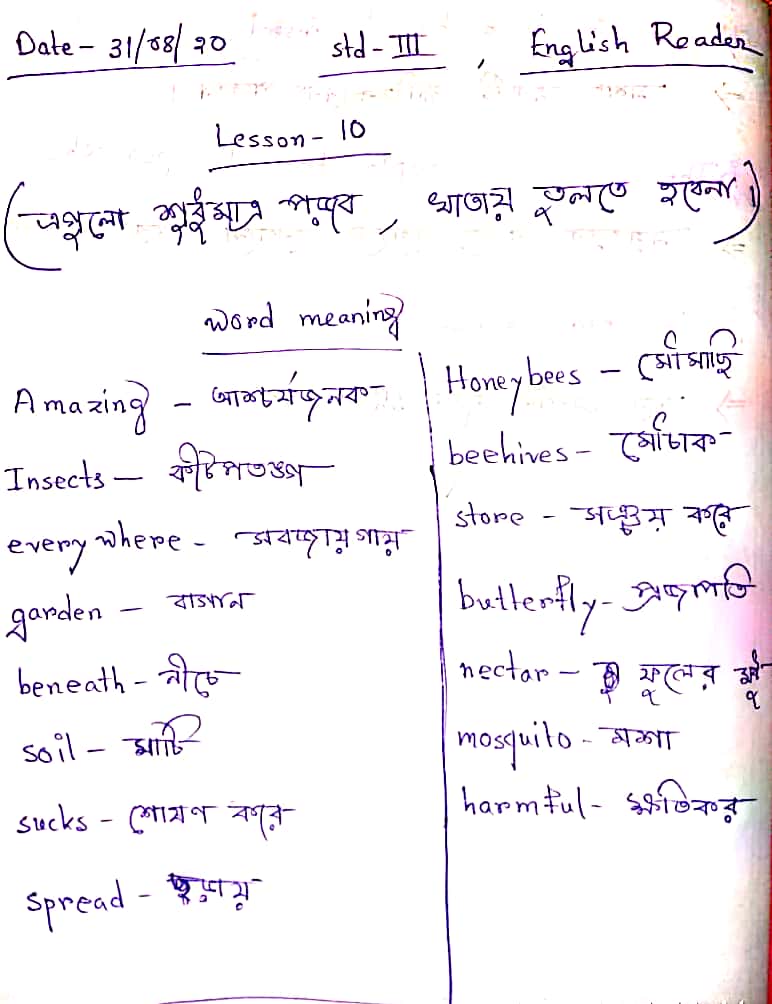 Date- 31/08/20 std- III , English Reader
Lesson- 10
(এগুলো শুধুমাত্র পড়বে , খাতায় তুলতে হবেনা)
word meaning
Amazing - আশ্চর্যজনক
Insects - কীটপতঙ্গ
everywhere - সবজায়গায়
garden - বাগান
beneath - নীচে
soil - মাটি
sucks - শোষণ করে
spread - ছড়ায়
Honeybees - মৌমাছি
beehives - মৌচাক
store - সঞ্চয় করে
butterfly - প্রজাপতি
nectar - ফুলের মধু
mosquito - মশা
harmful - ক্ষতিকর